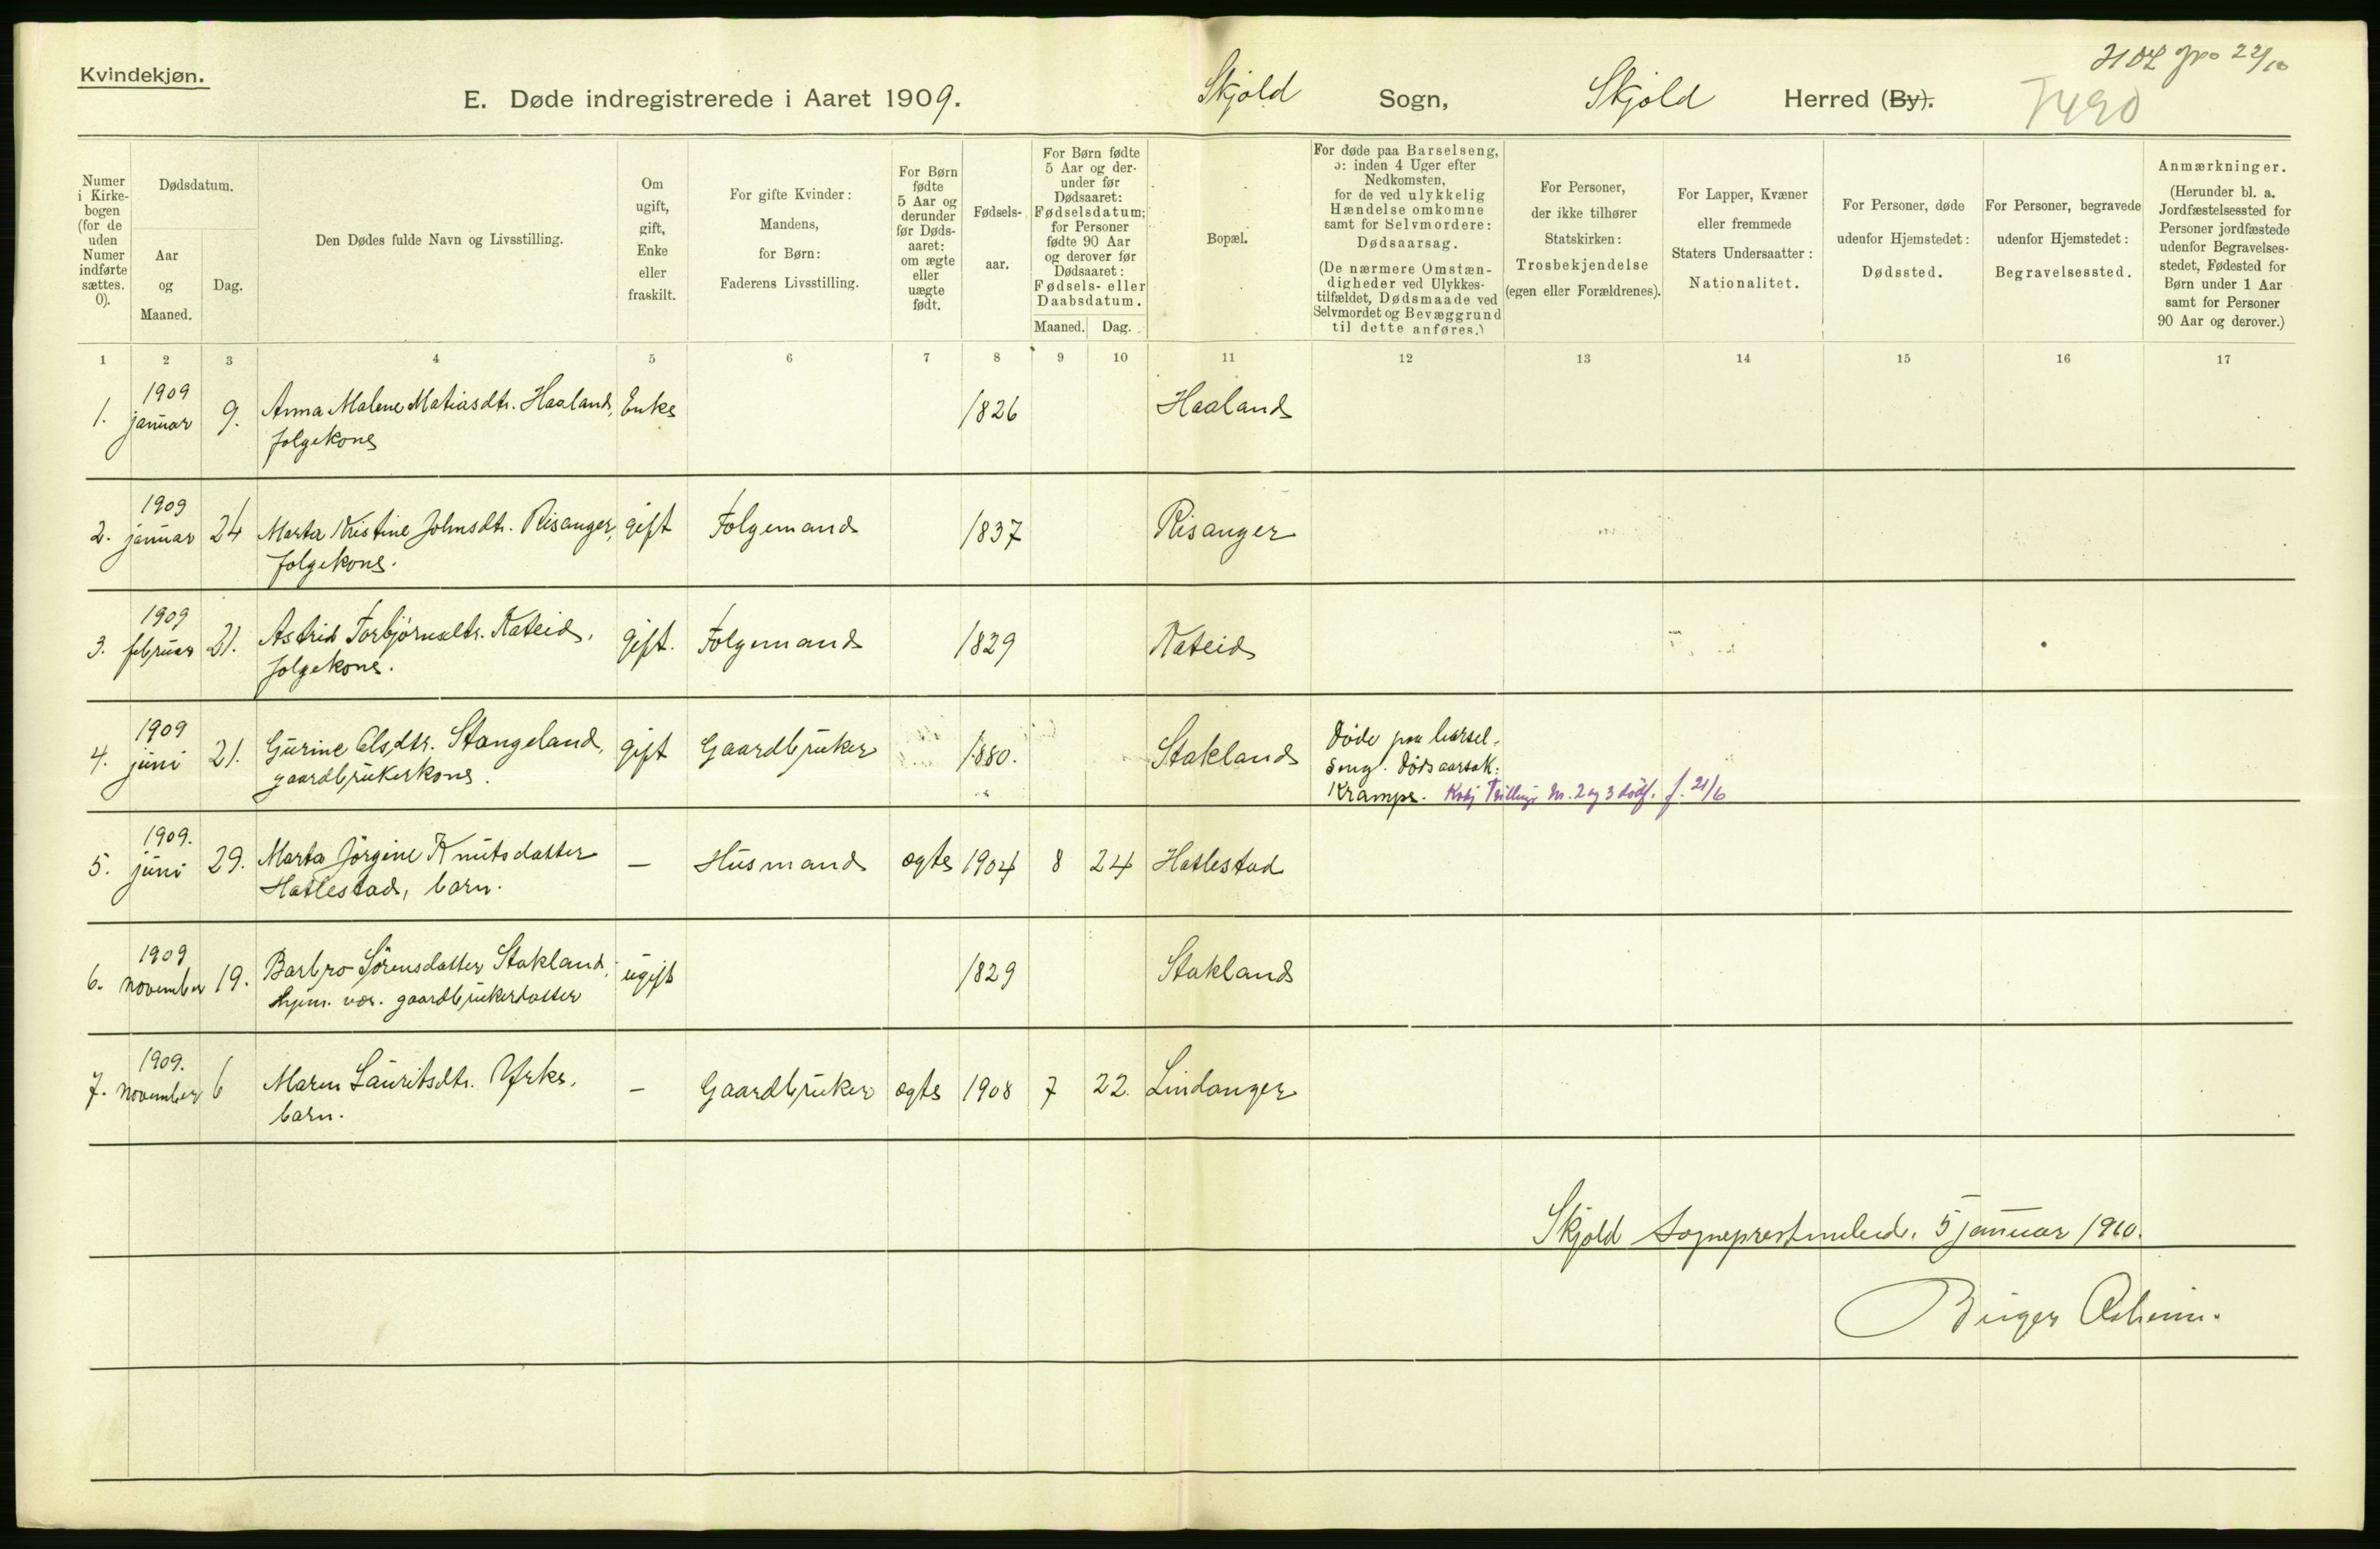 Kvindekjøn.
E. Døde indregistrerede i Aaret 1909. Skjold Sogn, Skjold Herred (By).
22/10
7490
Numer i Kirkebogen (for de uden Numer indførte sættes. 0).
Dødsdatum.
Aar og Maaned.
Dag.
Den Dødes fulde Navn og Livsstilling.
Om ugift, gift, Enke eller fraskilt.
For gifte Kvinder: Mandens, for Børn: Faderens Livsstilling.
For Børn fødte 5 Aar og derunder før Dødsaaret: om ægte eller uægte født.
Fødselsaar.
For Børn fødte 5 Aar og derunder før Dødsaaret: Fødselsdatum; for Personer fødte 90 Aar og derover før Dødsaaret: Fødsels- eller Daabsdatum.
Maaned. Dag.
Bopæl.
For døde paa Barselseng, ɔ: inden 4 Uger efter Nedkomsten, for de ved ulykkelig Hændelse omkomne samt for Selvmordere: Dødsaarsag.
(De nærmere Omstændigheder ved Ulykkestilfældet, Dødsmaade ved Selvmordet og Bevæggrund til dette anføres.)
For Personer, der ikke tilhører Statskirken: Trosbekjendelse (egen eller Forældrenes).
For Lapper, Kvæner eller fremmede Staters Undersaatter: Nationalitet.
For Personer, døde udenfor Hjemstedet: Dødssted.
For Personer, begravede udenfor Hjemstedet: Begravelsessted.
Anmærkninger.
(Herunder bl. a. Jordfæstelsessted for Personer jordfæstede udenfor Begravelsesstedet, Fødested for Børn under 1 Aar samt for Personer 90 Aar og derover.)
1 2 3 4 5 6 7 8 9 10 11 12 13 14 15 16 17
1909
1. januar 9. Anna Malene Matiasdtr. Haaland, Enke 1826 Haaland
folgekone
1909
2. januar 24 Marta Kristine Johnsdtr. Risanger, gift Folgemand 1837 Risanger
folgekone.
1909
3. februar 21. Astrid Torbjørnsdtr. Kateid, gift. Folgemand 1829 Kateid
folgekone.
1909
4. juni 21. Gurine Olsdtr. Stangeland, gift Gaardbruker 1880. Stakland Døde paa barsel-
gaardbrukerkone. seng. Dødsaarsak:
Krampe. Tvillinger Nr. 2 og 3 dødf. f. 21/6
1909.
5. juni 29. Marta Jørgine Knutsdatter — Husmand ægte 1904 8 24 Hatlestad
Hatlestad, barn.
1909
6. november 19. Barbro Sørensdatter Stakland, ugift 1829 Stakland
hjem. vær. gaardbrukerdatter
1909.
7. november 6 Maren Lauritsdtr. Yrke, — Gaardbruker ægte 1908 7 22. Lindanger
barn.
Skjold sogneprestembede, 5 januar 1910.
Birger